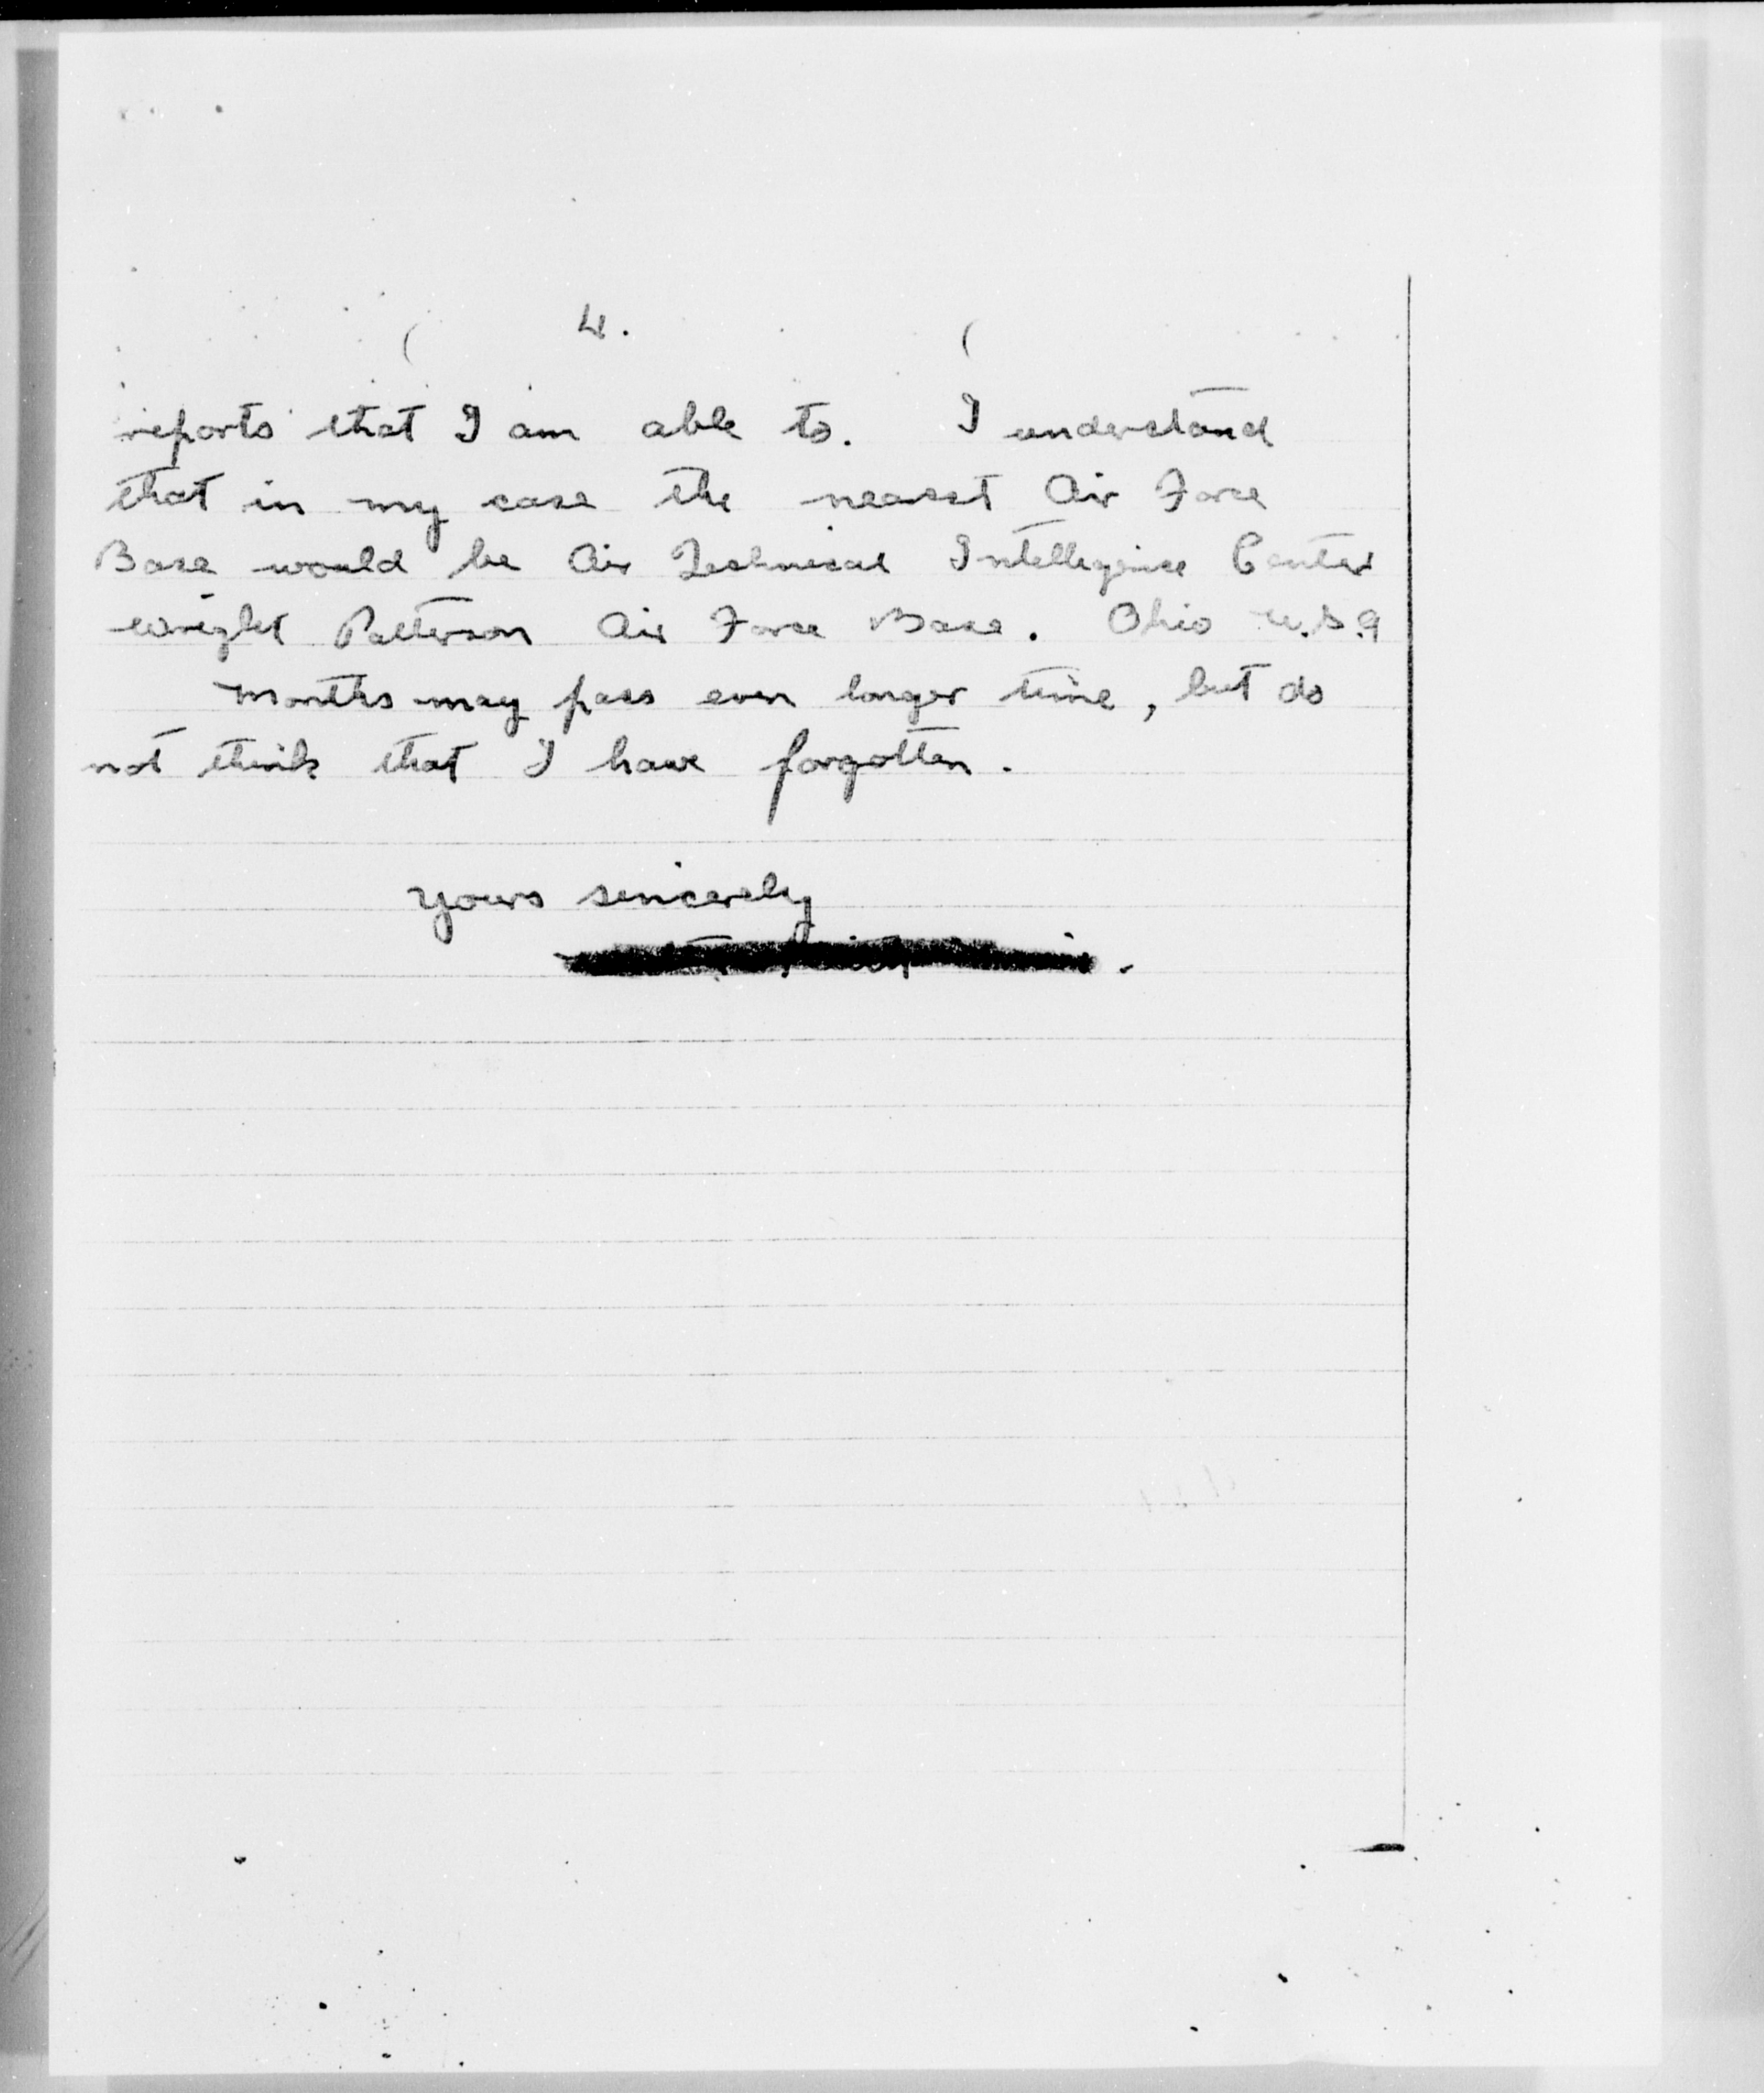 4.
reports that I am able to. I understand
that in my case the nearest Air Force
Base would be Air Technical Intellegence Center
Wright Patterson Air Force Base. Ohio U.S.A
Months may pass even longer time, but do
not think that I have forgotten.
Yours sincerely